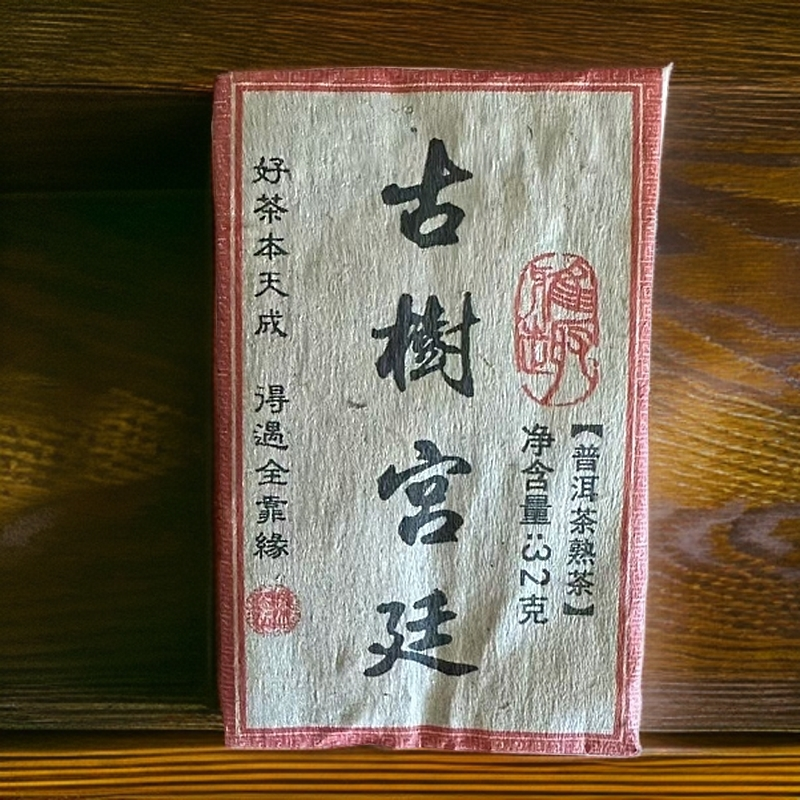 【普洱茶熟茶】
净含量:32克
古樹宮廷
好茶本天成 得遇全靠緣